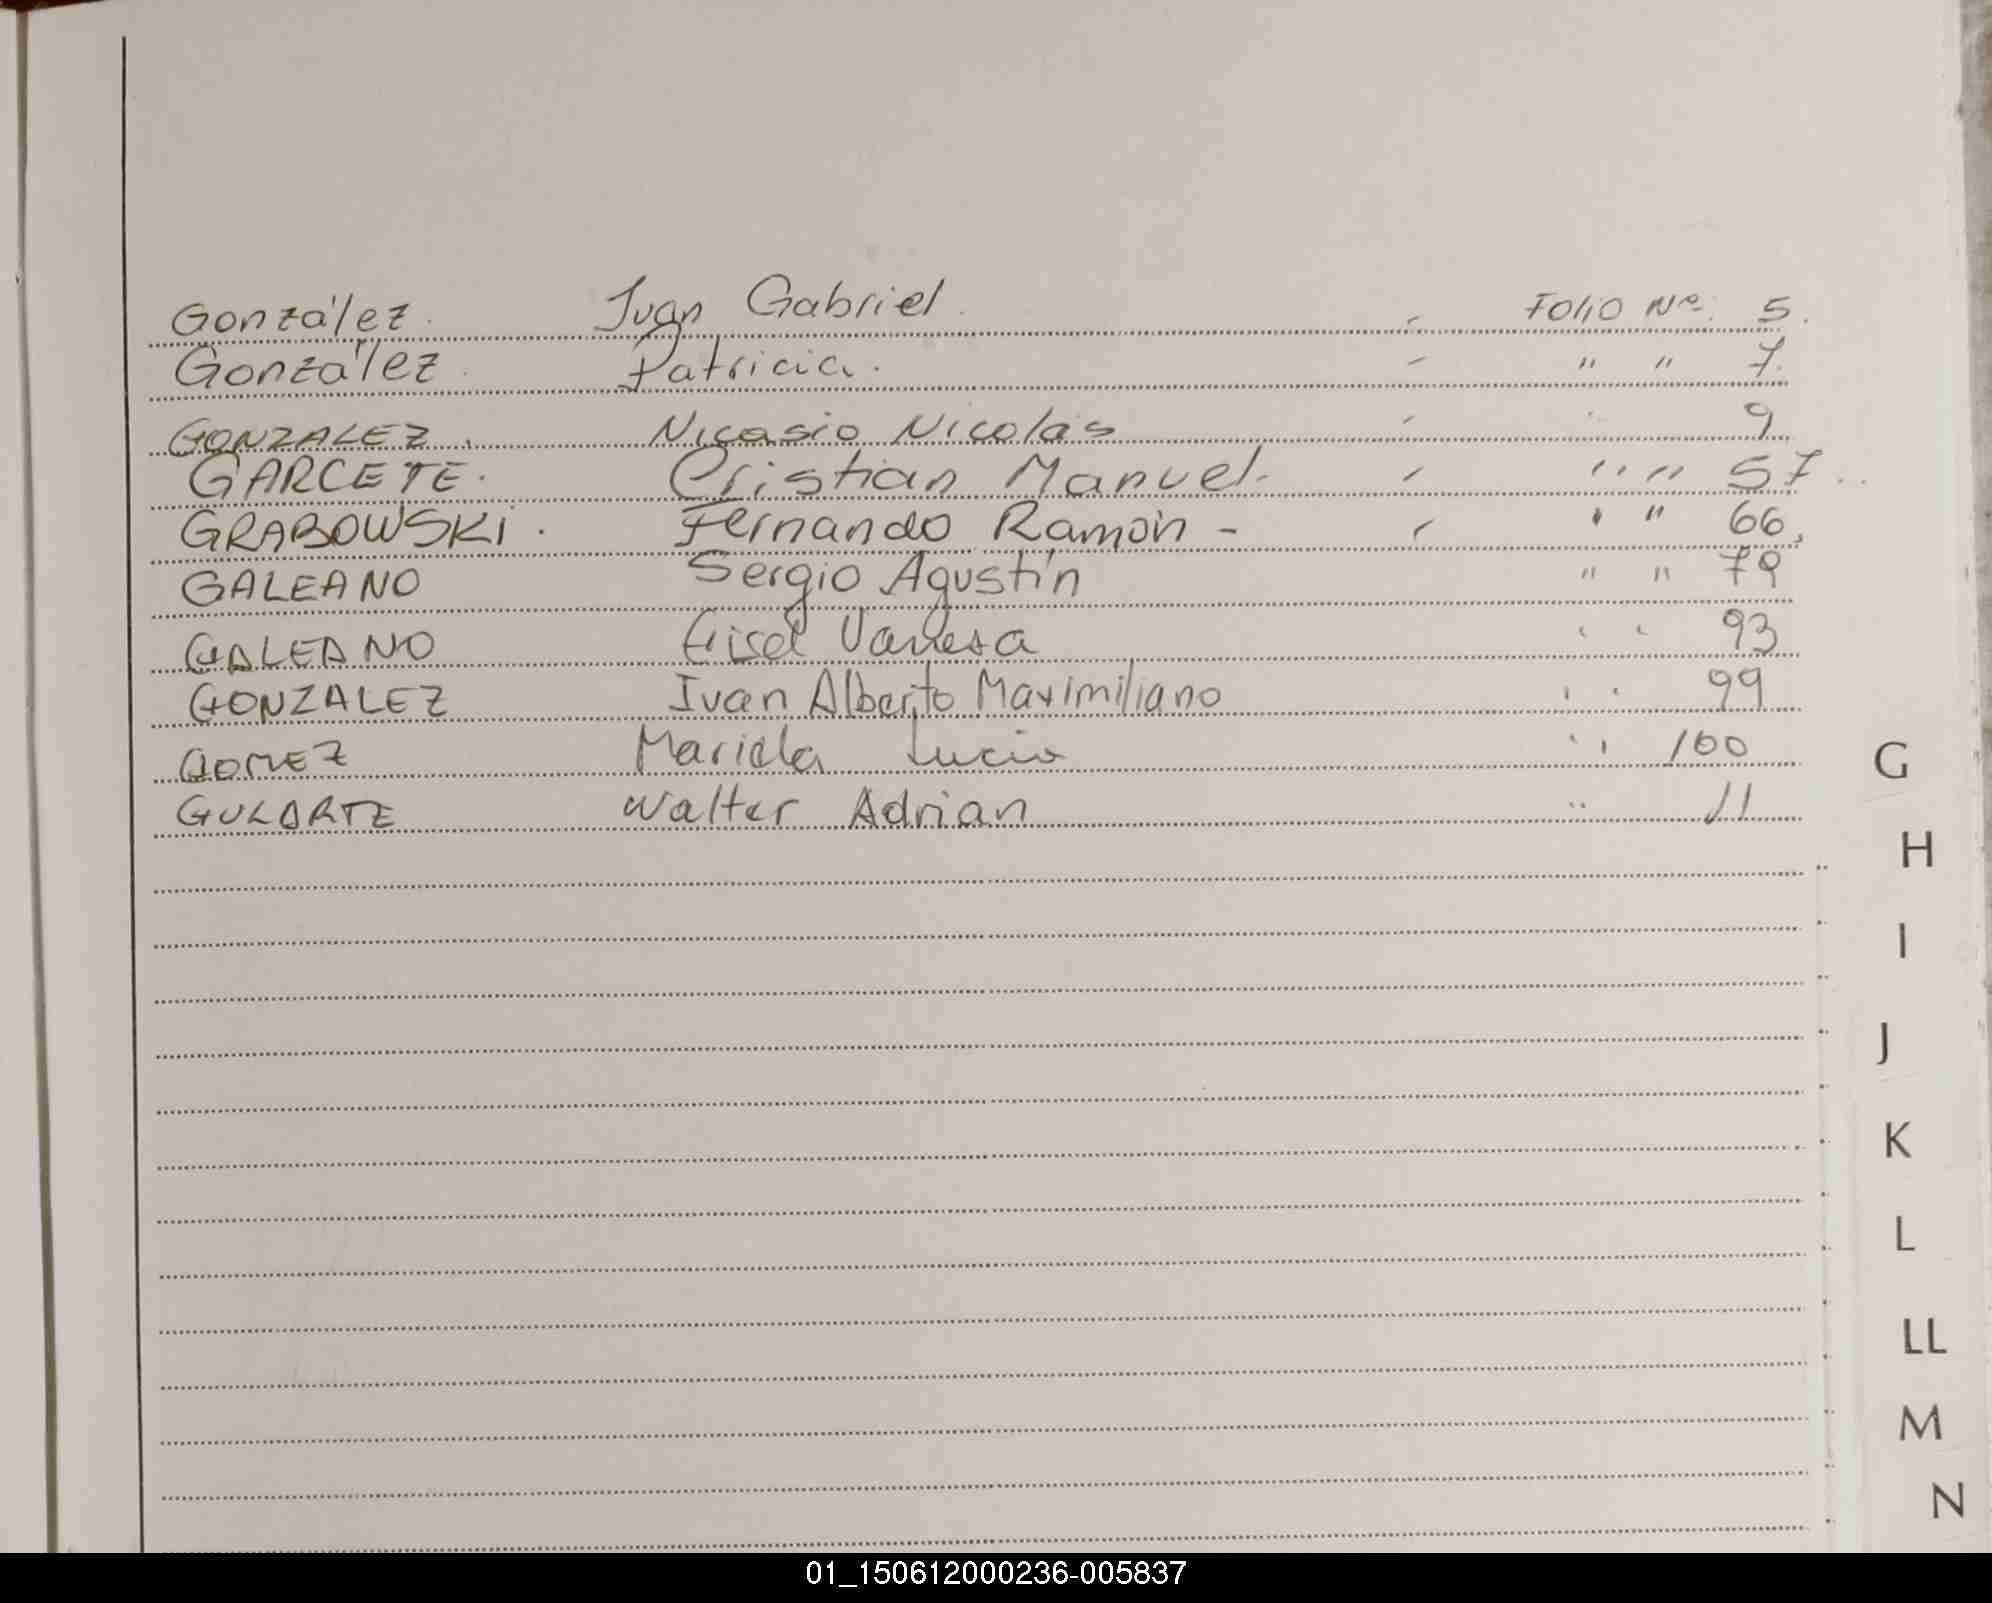 González. Juan Gabriel. - Folio Nº: 5.
González. Patricia. - " " 7.
GONZALEZ. Nicasio Nicolás - " 9
GARCETE. Cristian Manuel. - " " 57.
GRABOWSKI. Fernando Ramón - - " " 66,
GALEANO Sergio Agustín " " 79
GALEANO Gisel Vanesa " " 93
GONZALEZ Ivan Alberto Maximiliano " " 99
GOMEZ Mariela Lucia " " 100
G
GULARTE Walter Adrian " 11
H
I
J
K
L
LL
M
N
01_150612000236-005837